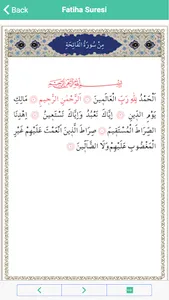 Back
Fatiha Suresi
مِنْ سُورَةِ الْفَاتِحَةِ
بِسْمِ اللهِ الرَّحْمٰنِ الرَّحِيمِ
اَلْحَمْدُ لِلّٰهِ رَبِّ الْعَالَمِينَ ۝ اَلرَّحْمٰنِ الرَّحِيمِ ۝ مَالِكِ
يَوْمِ الدِّينِ ۝ اِيَّاكَ نَعْبُدُ وَاِيَّاكَ نَسْتَعِينُ ۝ اِهْدِنَا
الصِّرَاطَ الْمُسْتَقِيمَ ۝ صِرَاطَ الَّذِينَ اَنْعَمْتَ عَلَيْهِمْ غَيْرِ
الْمَغْضُوبِ عَلَيْهِمْ وَلَا الضَّالِّينَ ۝